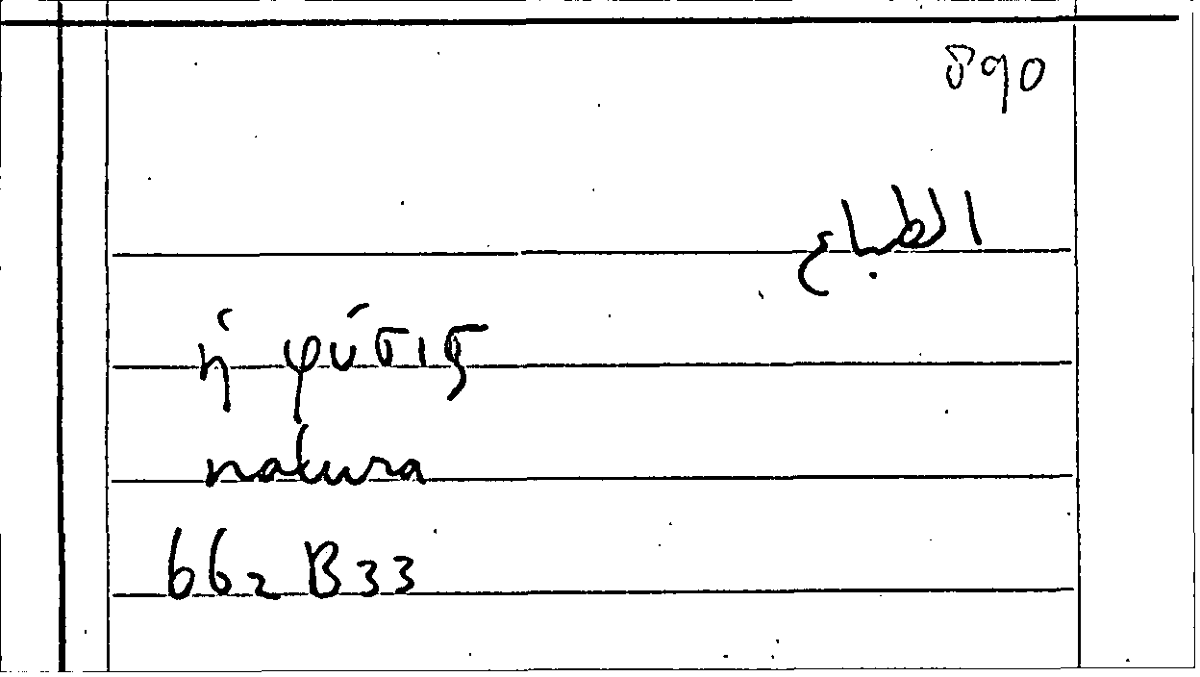 890
الطباع
ἡ φύσις
natura
662 B33